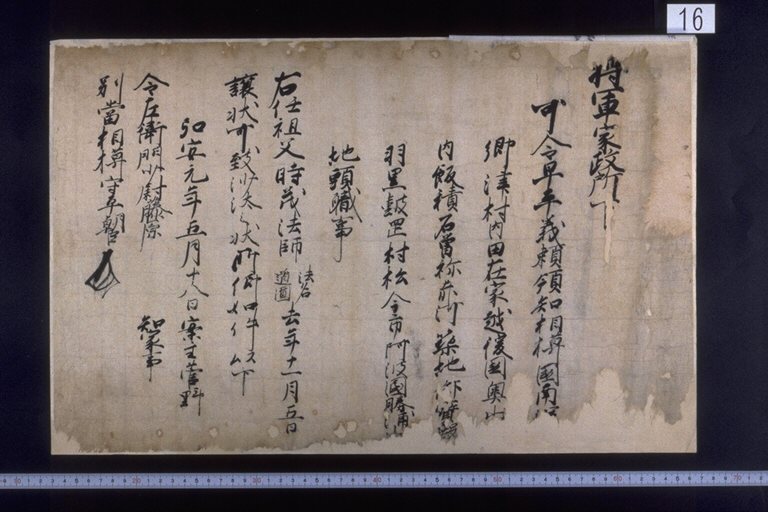 16
将軍家政所下
可令早平義頼領知相模国南深
郷津村内田在家越後国奥山
内飯積石曽祢赤河築地
羽黒鼓罡村松今市阿波国勝浦
地頭職事
右任祖父時茂法師法名道円去年十一月五日
譲状可致沙汰之状所仰如件以下
弘安元年五月十八日案主菅野
知家事
令左衛門少尉藤原
別當相模守平朝臣